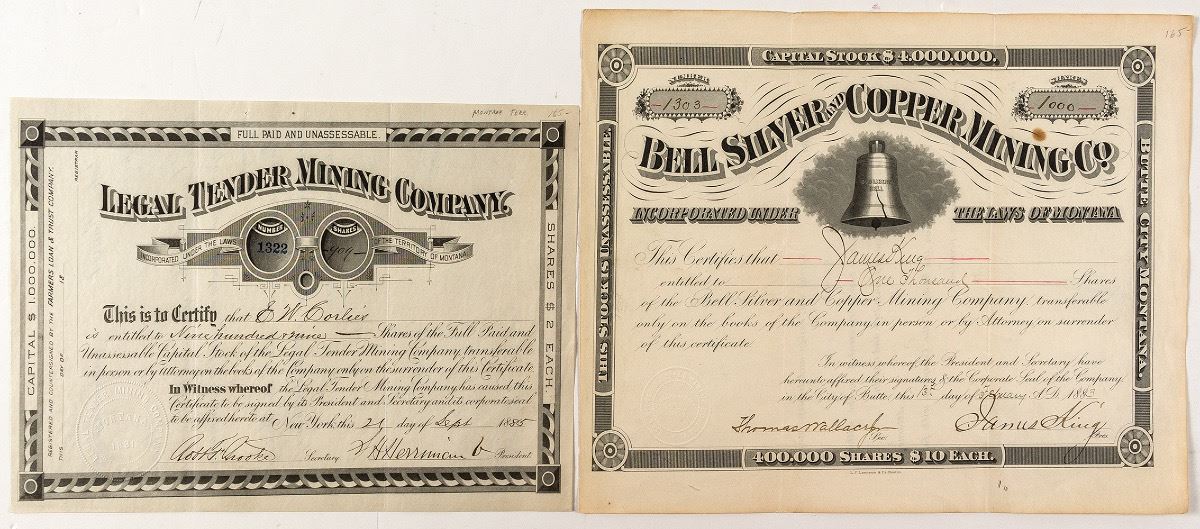 MONTANA TERR. 165-
FULL PAID AND UNASSESSABLE.
LEGAL TENDER MINING COMPANY.
NUMBER 1322
SHARES 909
INCORPORATED UNDER THE LAWS OF THE TERRITORY OF MONTANA.
CAPITAL $ 1.000.000.
REGISTERED AND COUNTERSIGNED BY THE FARMERS LOAN & TRUST COMPANY.
THIS DAY OF 18
REGISTRAR
SHARES $ 2 EACH.
This is to Certify that E. W. Corlies
is entitled to Nine hundred nine Shares of the Full Paid and
Unassessable Capital Stock of the Legal Tender Mining Company, transferable
in person or by Attorney on the books of the Company only on the surrender of this Certificate.
In Witness whereof the Legal Tender Mining Company has caused this
Certificate to be signed by its President and Secretary and its corporate seal
to be affixed hereto at New York this day of Sept 1885
Secretary President
165-
CAPITAL STOCK $ 4.000.000.
NUMBER
1303
SHARES
1000
BELL SILVER AND COPPER MINING CO.
INCORPORATED UNDER THE LAWS OF MONTANA
THIS STOCK IS UNASSESSABLE.
BUTTE CITY MONTANA.
This Certifies that James King
entitled to One Thousand Shares
of the Bell Silver and Copper Mining Company, transferable
only on the books of the Company in person or by Attorney on surrender
of this certificate.
In witness whereof, the President and Secretary have
hereunto affixed their signatures & the Corporate Seal of the Company
in the City of Butte, this 15th day of A.D. 1883
Thomas Wallace Sec.
James King Pres.
400.000 SHARES $ 10 EACH.